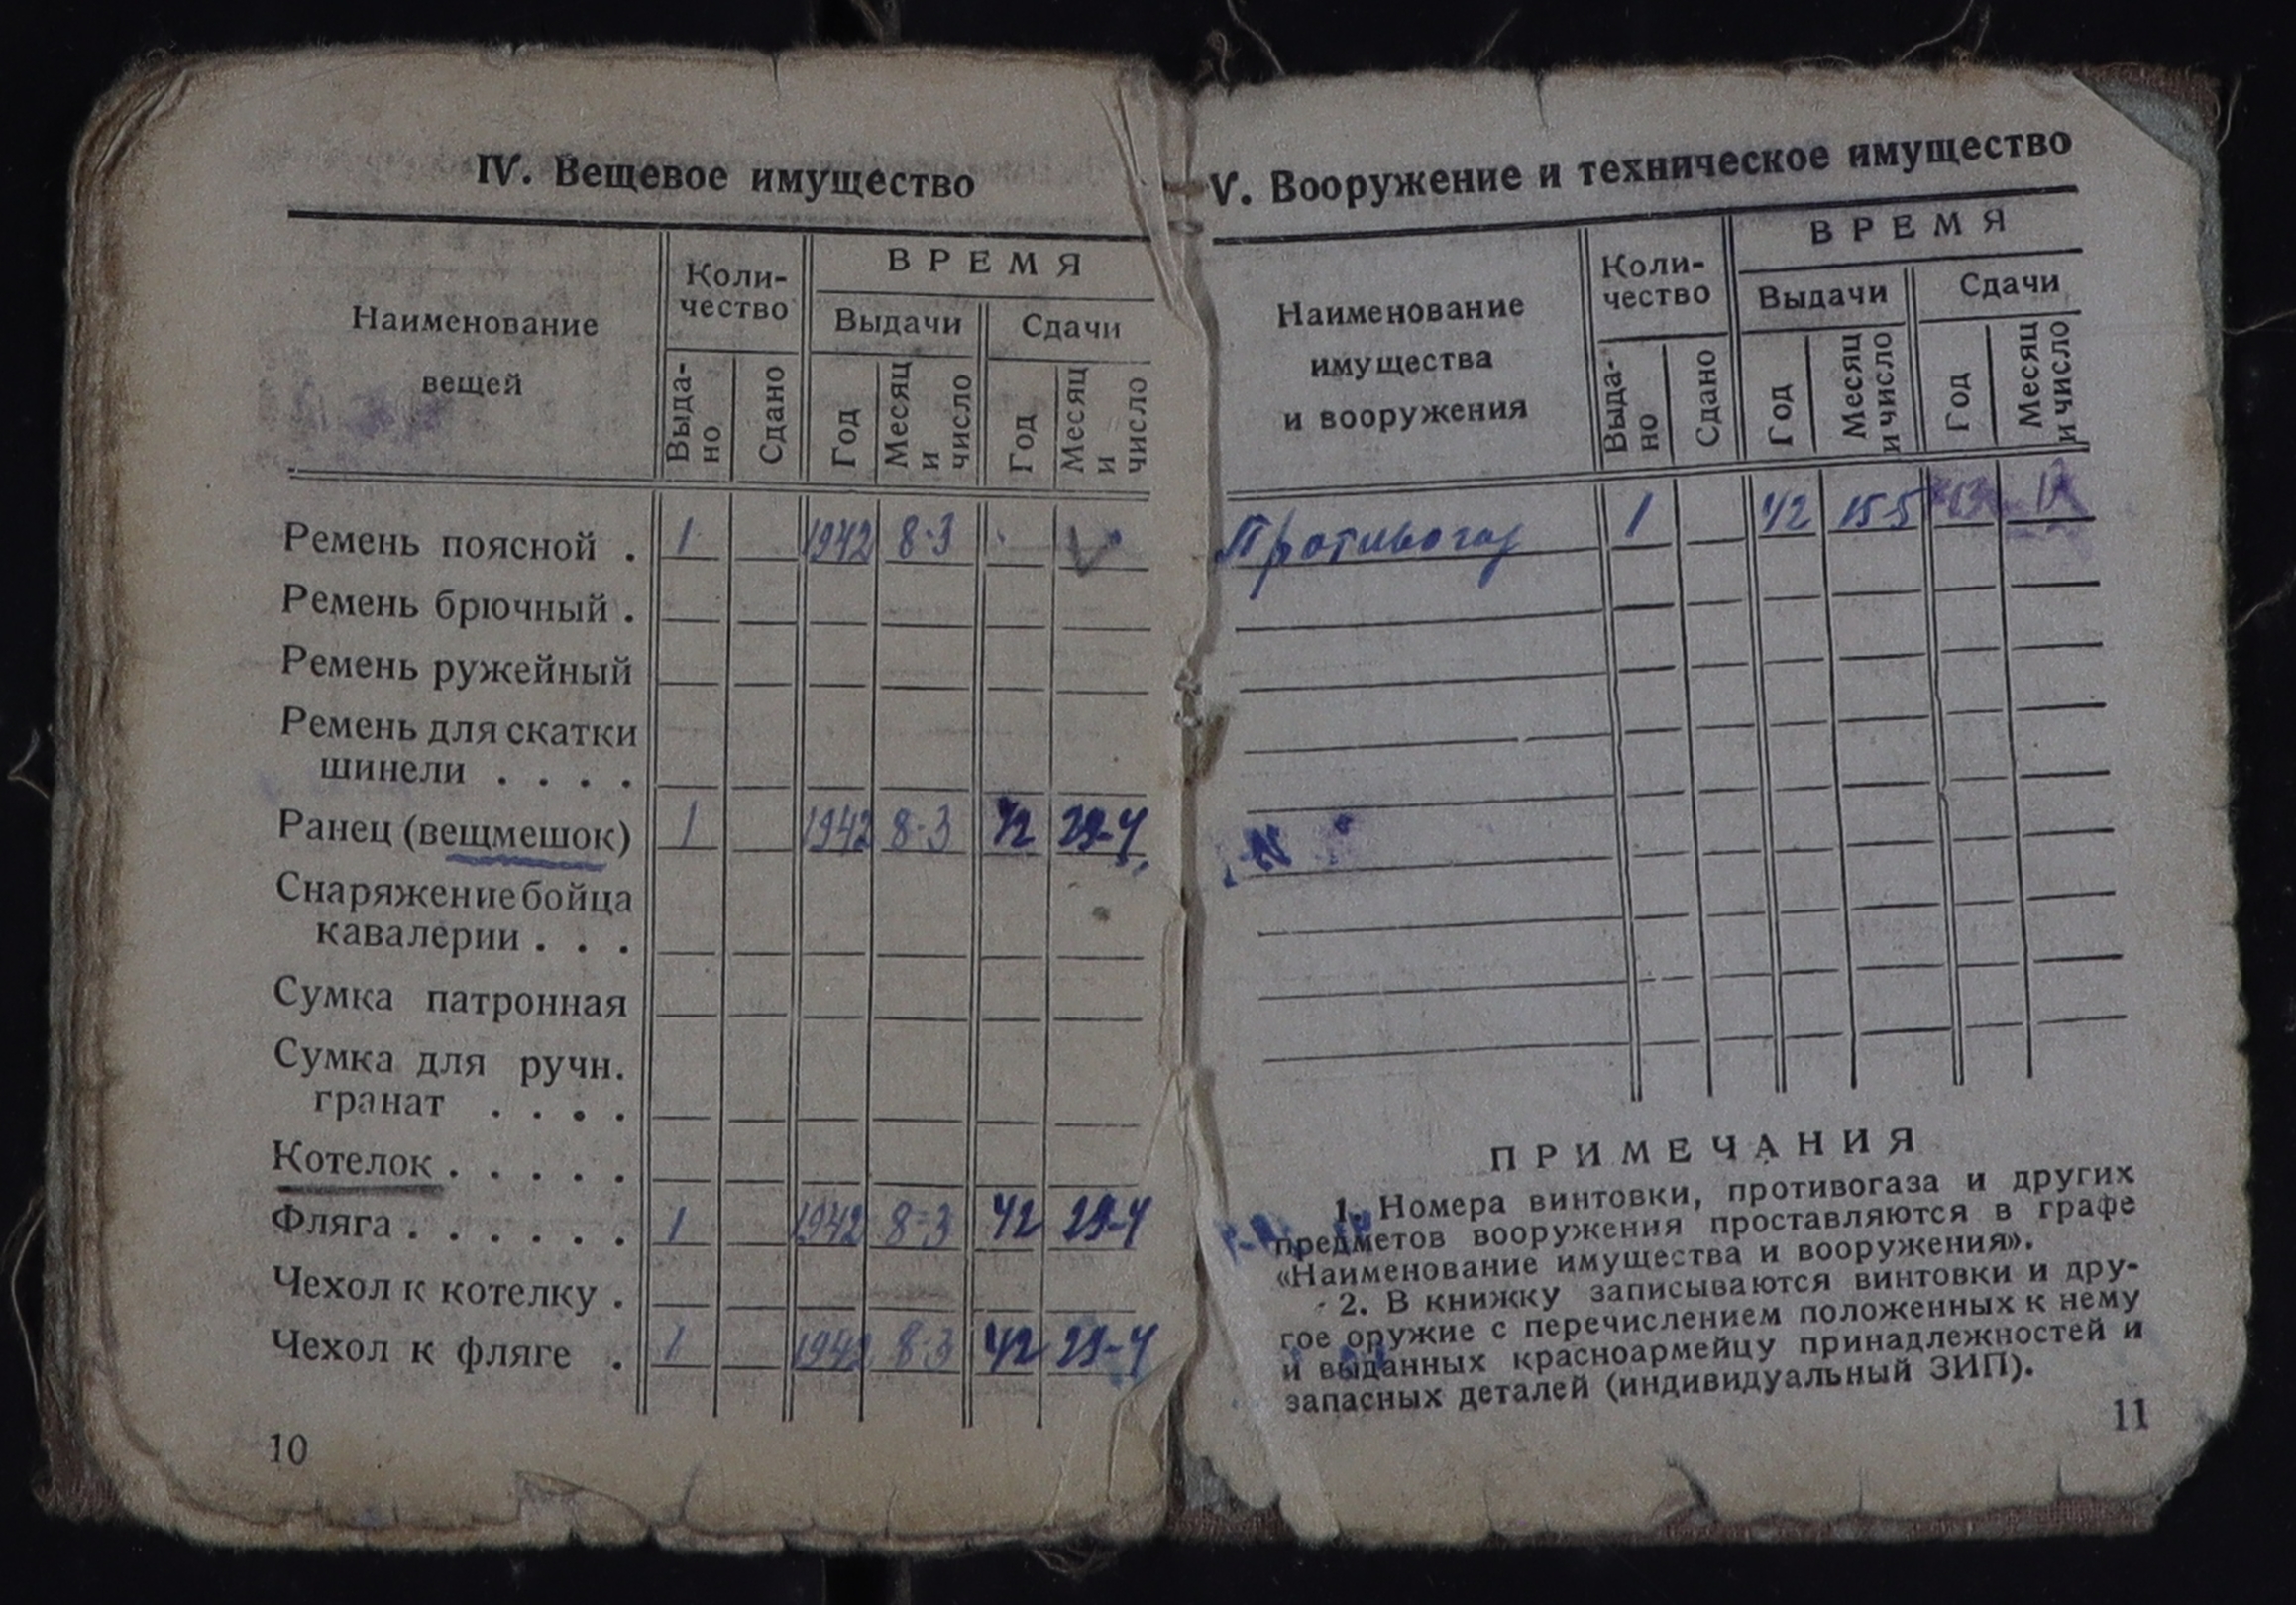 IV. Вещевое имущество
Наименование
вещей
Коли-
чество
ВРЕМЯ
Выдачи
Сдачи
Выда-
но
Сдано
Год
Месяц
и
число
Год
Месяц
и
число
Ремень поясной . 1 1942 8-3
Ремень брючный .
Ремень ружейный
Ремень для скатки
шинели . . . .
Ранец (вещмешок) 1 1942 8-3 42 29-4
Снаряжение бойца
кавалерии . . .
Сумка патронная
Сумка для ручн.
гранат . . . .
Котелок . . . . .
Фляга . . . . . . 1 1942 8-3 42 29-4
Чехол к котелку .
Чехол к фляге . 1 1942 8-3 42 29-4
10
V. Вооружение и техническое имущество
Наименование
имущества
и вооружения
Коли-
чество
ВРЕМЯ
Выдачи
Сдачи
Выда-
но
Сдано
Год
Месяц
и число
Год
Месяц
и число
Противогаз 1 42 15-5
ПРИМЕЧАНИЯ
1. Номера винтовки, противогаза и других
предметов вооружения проставляются в графе
«Наименование имущества и вооружения».
2. В книжку записываются винтовки и дру-
гое оружие с перечислением положенных к нему
и выданных красноармейцу принадлежностей и
запасных деталей (индивидуальный ЗИП).
11